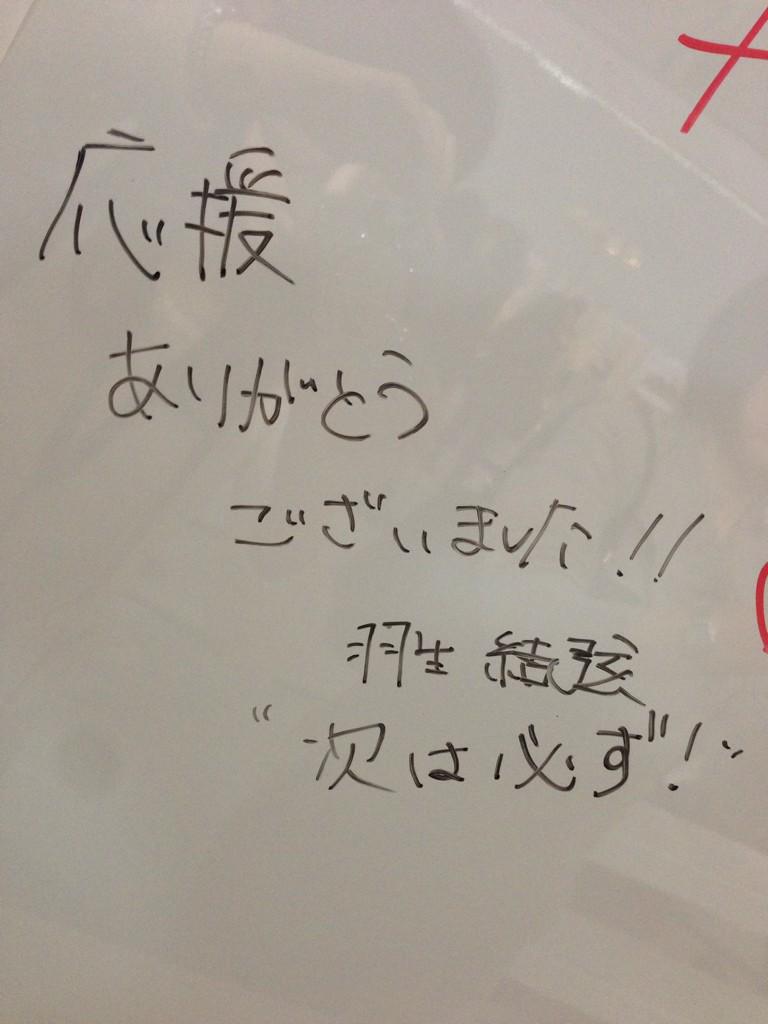 応援
ありがとう
ございました!!
羽生 結弦
“次は必ず!”